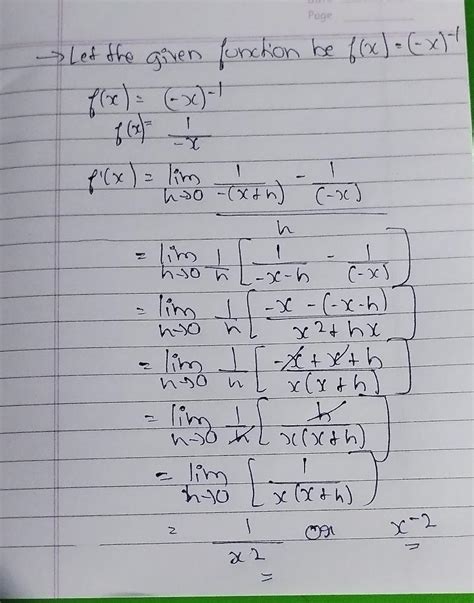 Page
→ Let the given function be f(x) = (-x)⁻¹
f(x) = (-x)⁻¹
f(x) = 1/-x
f'(x) = lim h→0 (1/-(x+h) - 1/(-x))/h
= lim h→0 1/h [1/-x-h - 1/(-x)]
= lim h→0 1/h [-x-(-x-h)/x²+hx]
= lim h→0 1/h [-x+x+h/x(x+h)]
= lim h→0 1/h [h/x(x+h)]
= lim h→0 [1/x(x+h)]
= 1/x² or x⁻²